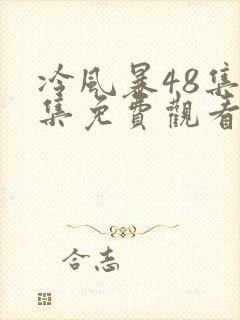 冷風暴48集
集免費觀看
合志